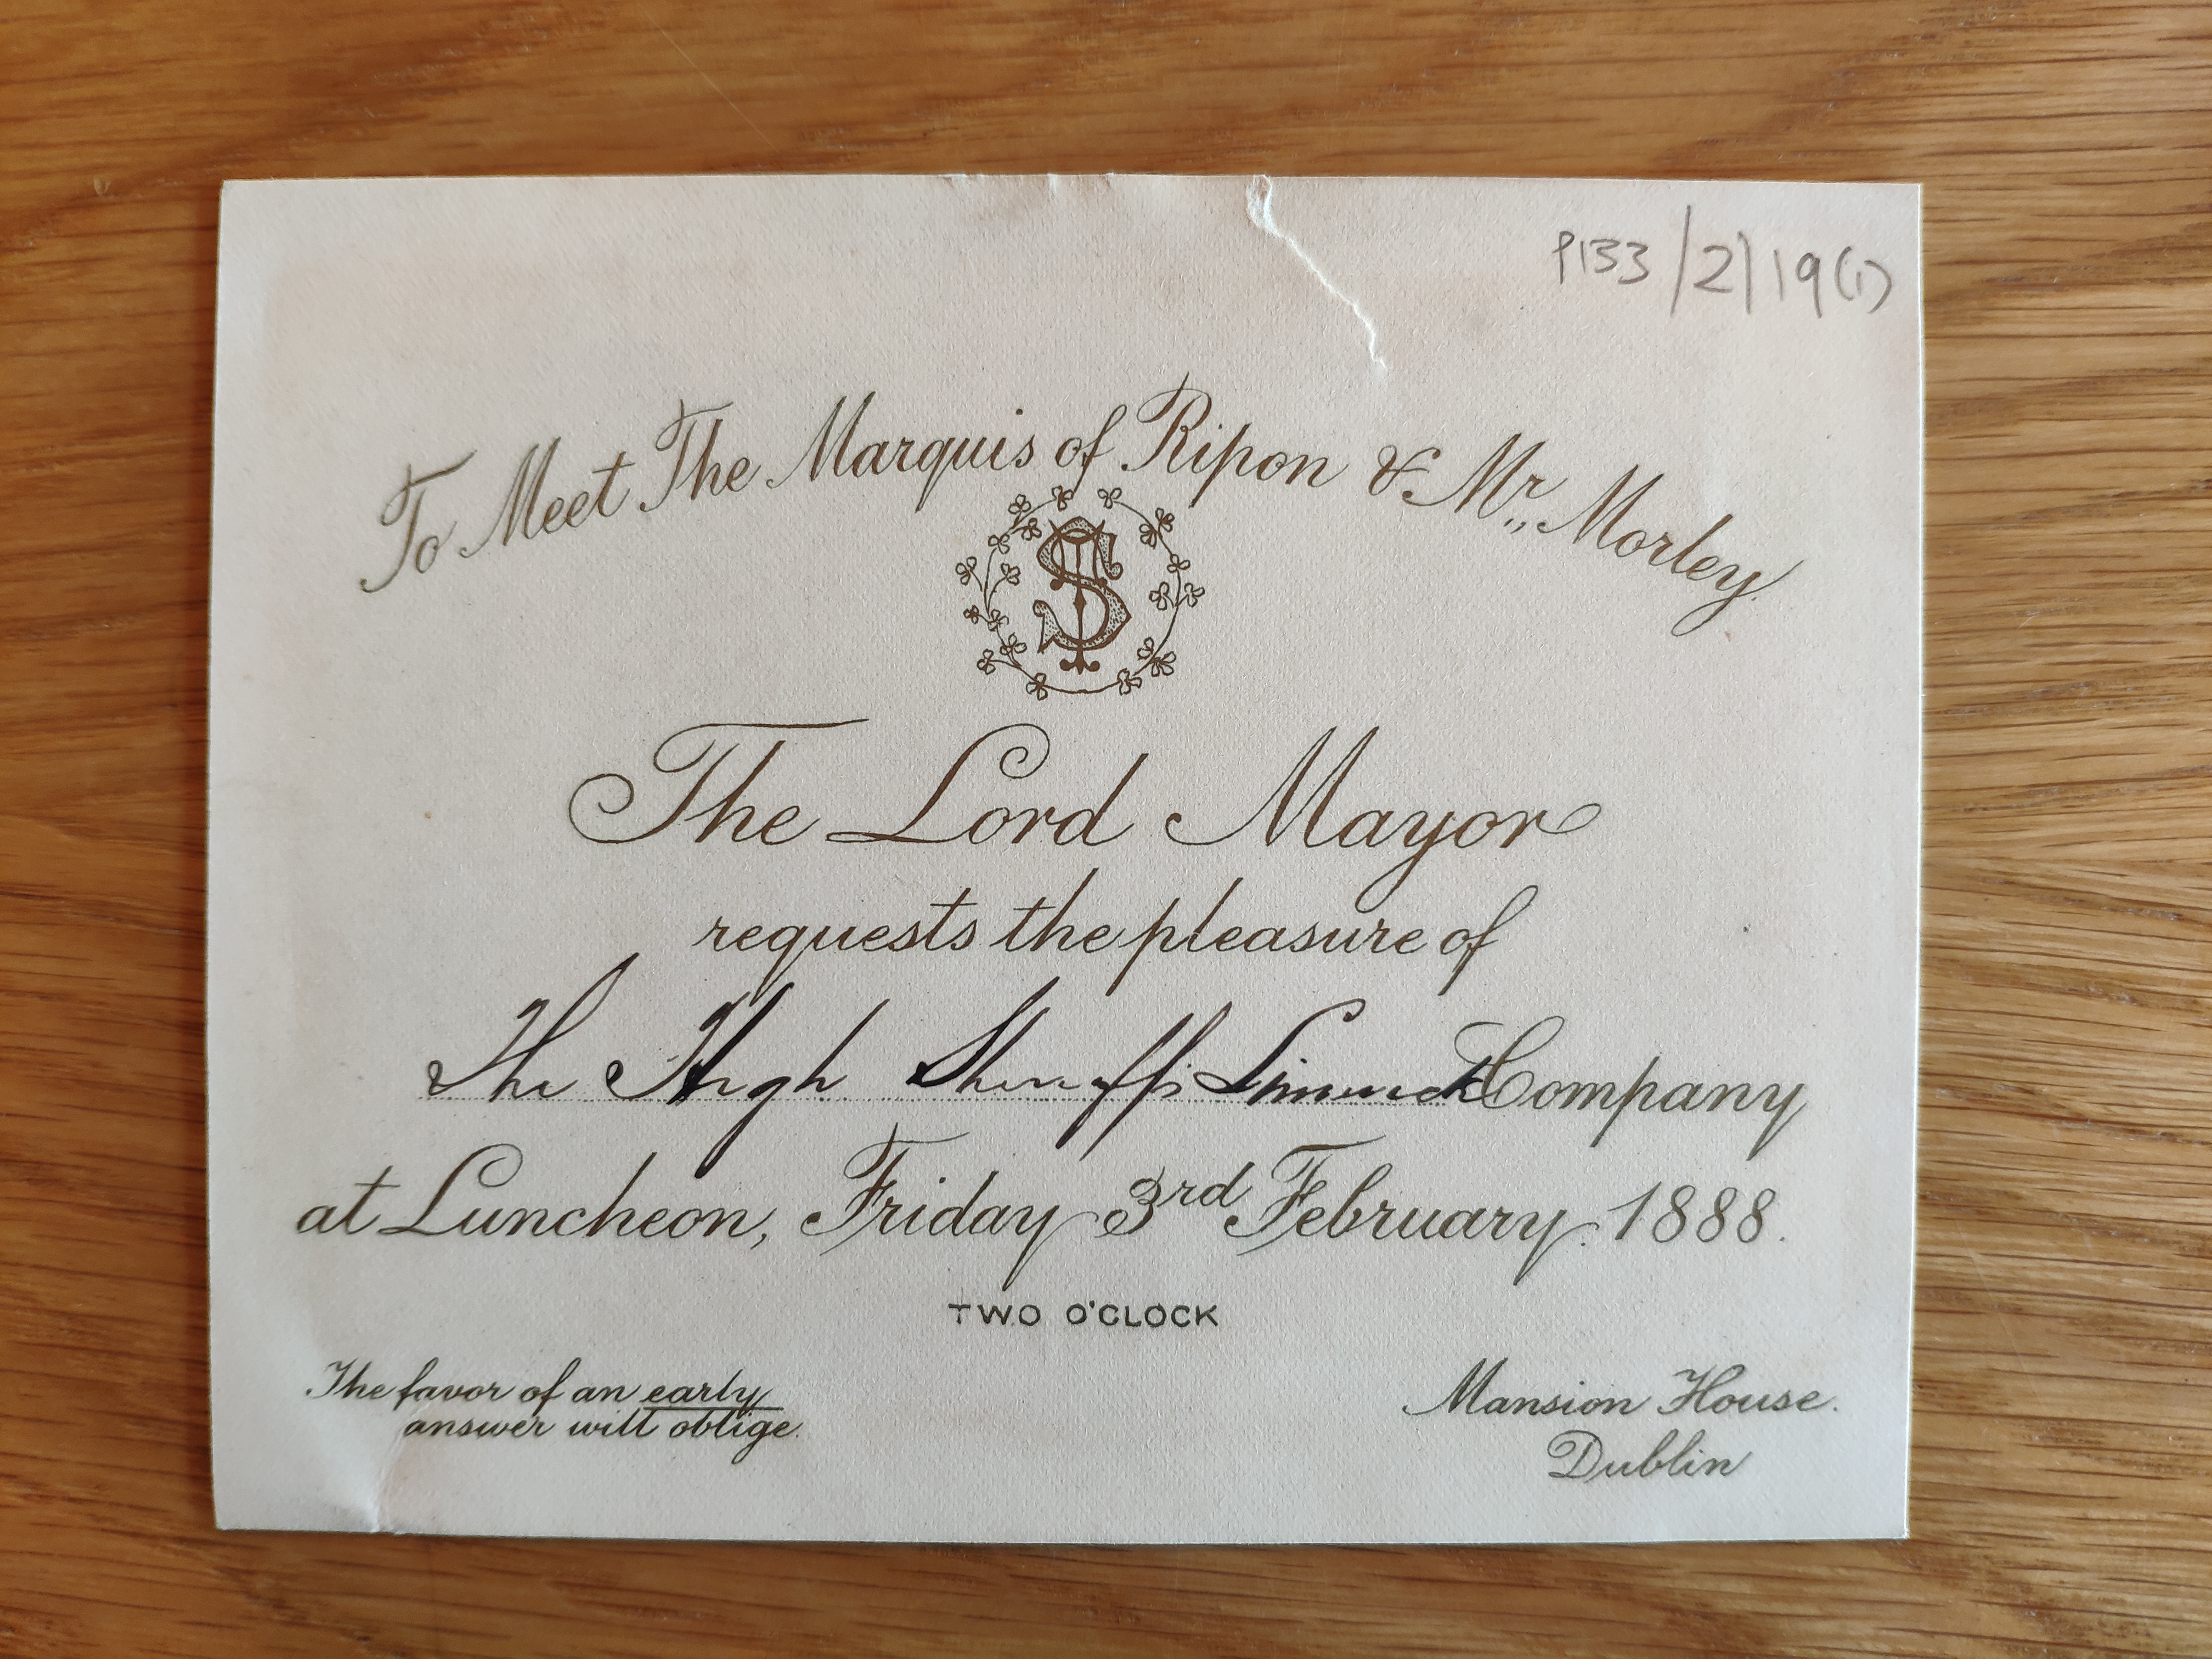 P133/2/19(1)
To Meet The Marquis of Ripon & Mr,, Morley.
TS
The Lord Mayor
requests the pleasure of
The High Sheriff Limerick Company
at Luncheon, Friday 3rd February. 1888.
TWO O'CLOCK
The favor of an early
answer will oblige.
Mansion House.
Dublin